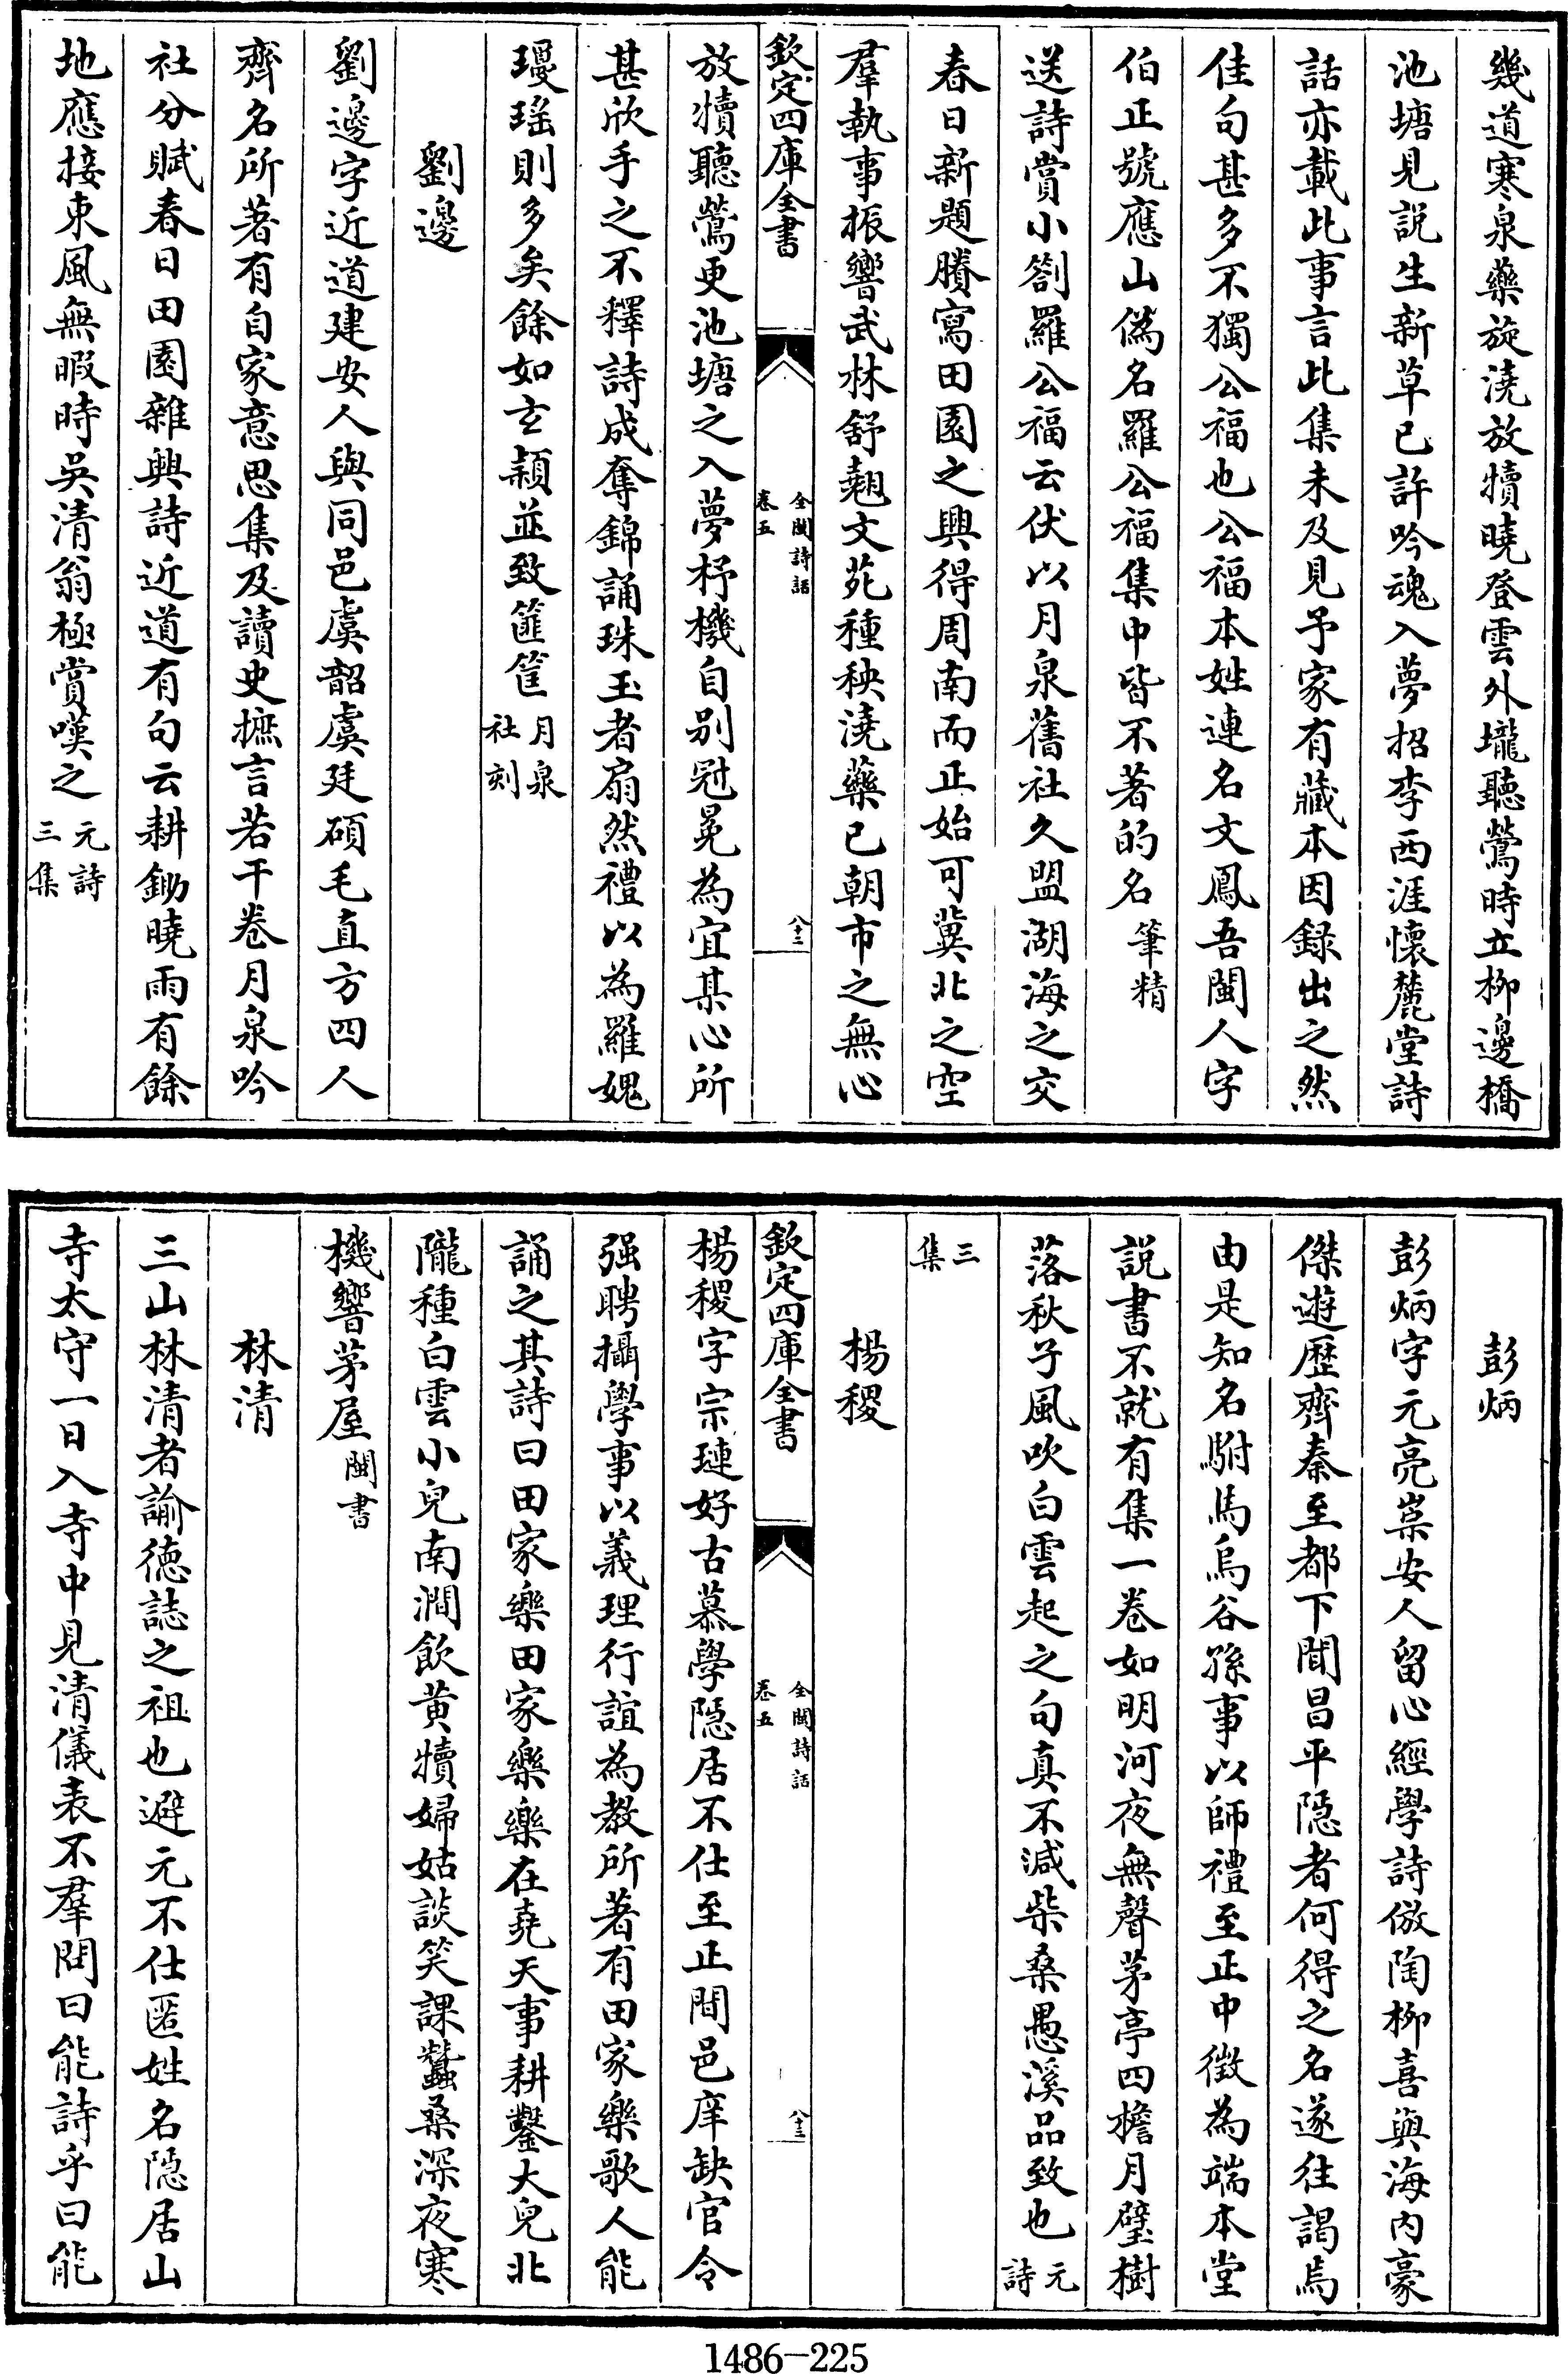 幾道寒泉藥旋澆放犢曉登雲外壠聽鶯時立柳邊橋
池塘見説生新草已許吟魂入夢招李西涯懐麓堂詩
話亦載此事言此集未及見予家有藏本因録出之然
佳句甚多不獨公福也公福本姓連名文鳳吾閩人字
伯正號應山偽名羅公福集中皆不著的名筆精
送詩賞小劄羅公福云伏以月泉舊社久盟湖海之交
春日新題賸寫田園之興得周南而正始可冀北之空
羣執事振響武林舒翹文苑種秧澆藥已朝市之無心
欽定四庫全書
全閩詩話
卷五
八十二
放犢聽鶯更池塘之入夢杼機自别冠冕為宜某心所
甚欣手之不釋詩成奪錦誦珠玉者扇然禮以為羅媿
瓊瑶則多矣餘如左頴並致篚筐月泉
社刻
劉邊
劉邊字近道建安人與同邑虞韶虞廷碩毛直方四人
齊名所著有自家意思集及讀史摭言若干卷月泉吟
社分賦春日田園雜興詩近道有句云耕鋤曉雨有餘
地應接東風無暇時吳清翁極賞嘆之元詩
三集
彭炳
彭炳字元亮崇安人留心經學詩倣陶柳喜與海内豪
傑遊歷齊秦至都下聞昌平隠者何得之名遂往謁焉
由是知名駙馬烏谷孫事以師禮至正中徴為端本堂
説書不就有集一卷如明河夜無聲茅亭四檐月壁樹
落秋子風吹白雲起之句真不減柴桑愚溪品致也元
詩
三
集
楊稷
欽定四庫全書
全閩詩話
卷五
八十三
楊稷字宗璉好古慕學隠居不仕至正間邑庠缺官令
强聘攝學事以義理行誼為教所著有田家樂歌人能
誦之其詩曰田家樂田家樂樂在堯天事耕鑿大兒北
隴種白雲小兒南澗飲黄犢婦姑談笑課蠶桑深夜寒
機響茅屋閩書
林清
三山林清者諭徳誌之祖也避元不仕匿姓名隠居山
寺太守一日入寺中見清儀表不羣問曰能詩乎曰能
1486-225